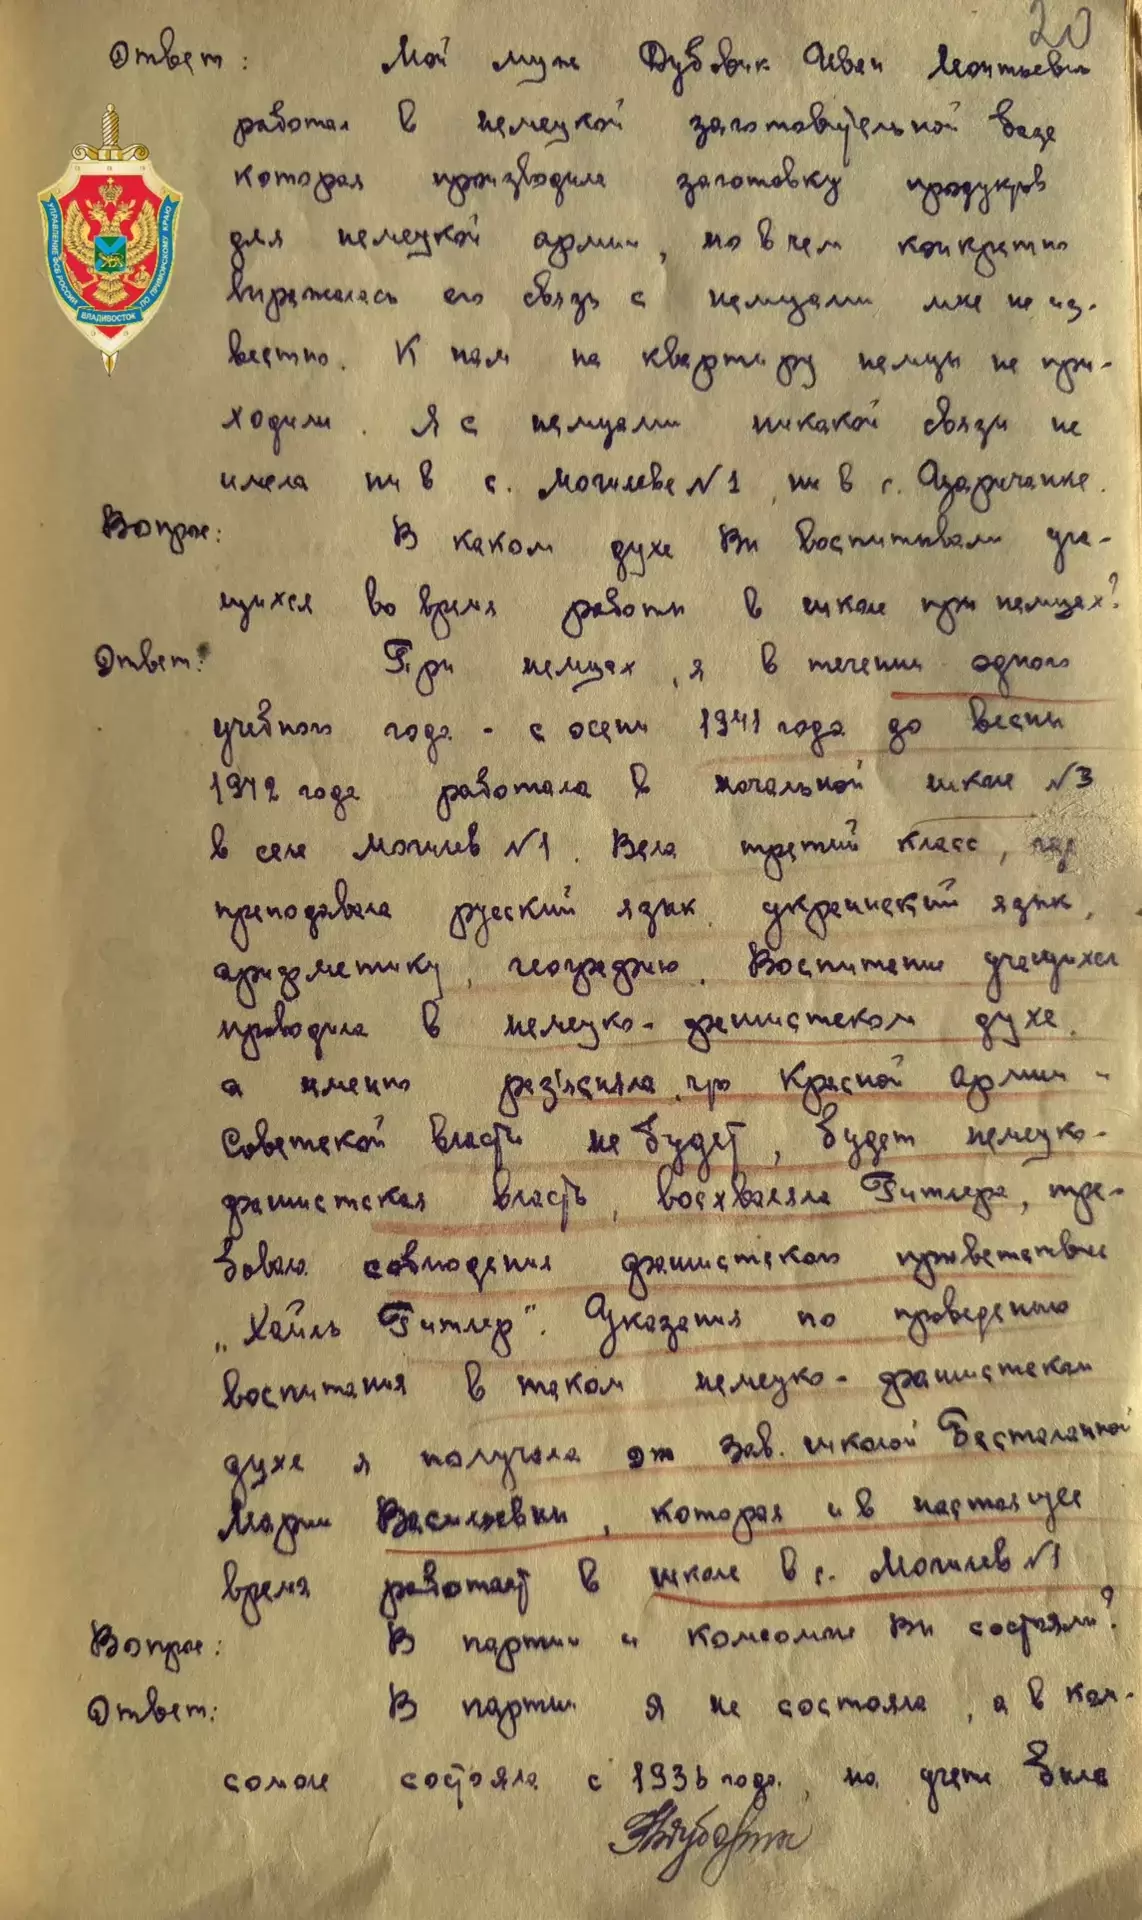 20
Ответ: Мой муж Дубовик Иван Леонтьевич
работал в немецкой заготовительной базе
которая производила заготовку продуктов
для немецкой армии, но в чем конкретно
виражалась его связь с немцами мне не из-
вестно. К нам на квартиру немцы не при-
ходили. Я с немцами никакой связи не
имела ни в с. Могилеве №1, ни в с. Царичанке.
Вопрос: В каком духе Ви воспитывали уча-
щихся во время работи в школе при немцах?
Ответ: При немцах, я в течении одного
учебного года - с осени 1941 года до весни
1942 года работала в начальной школе №3
в селе Могилев №1. Вела третий класс, где
преподавала русский язык, украинский язык,
арифметику, географию. Воспитание учащихся
проводила в немецко-фашистском духе,
а именно раз'ясняла, что Красной армии и
Советской власти не будет, будет немецко-
фашистская власть, восхваляла Гитлера, тре-
бовала соблюдения фашистского приветствие
„Хайль Гитлер". Указания по проведению
воспитания в таком немецко-фашистском
духе я получала от зав. школой Бесталанной
Марии Васильевни, которая и в настоящее
время работает в школе в с. Могилев №1
Вопрос: В партии и комсомоле Ви состояли?
Ответ: В партии я не состояла, а в ком-
сомоле состояла с 1936 года, на учете била
УПРАВЛЕНИЕ ФСБ РОССИИ ПО ПРИМОРСКОМУ КРАЮ
ВЛАДИВОСТОК